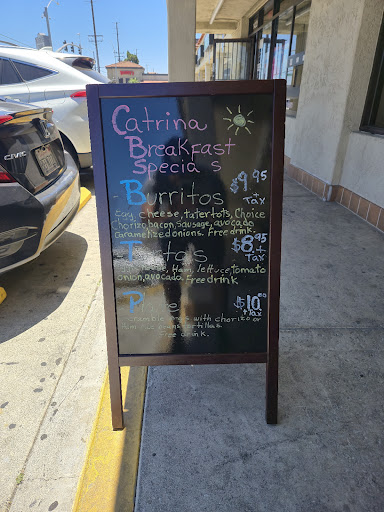 Catrina
Breakfast
Specia s
Burritos $9.95 + Tax
Egg, cheese, tatertots, Choice
Chorizo, bacon, sausage, avocado
caramelized onions. Free drink.
$8.95 + Tax
Ham, lettuce, tomato
onion, avocado. Free drink
$10.00 + Tax
with chorizo or
Free drink.
CIVIC